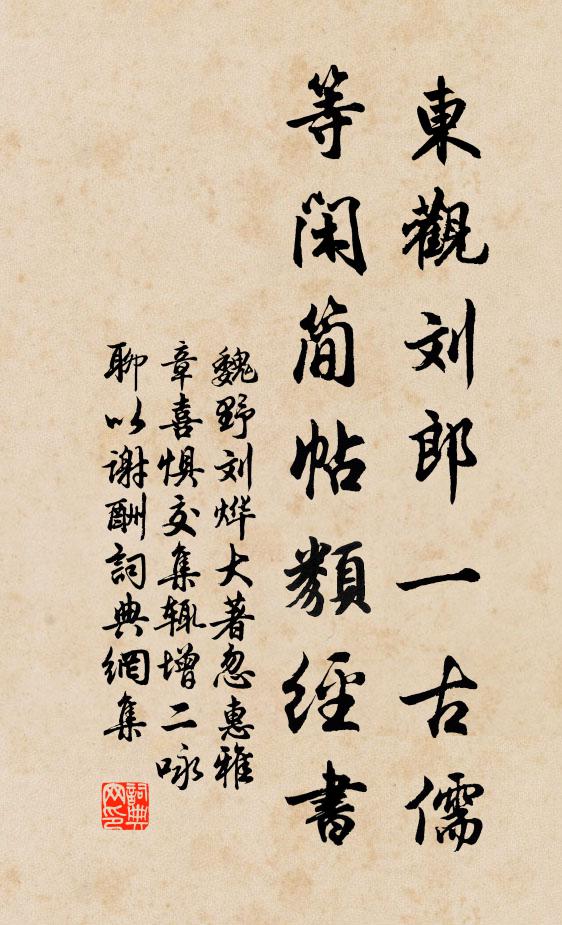 東觀刘郎一古儒
等闲简帖類經書
魏野刘烨大著忽惠雅
章喜惧交集辄增二咏
聊以谢酬詞典網集
詞典
网印